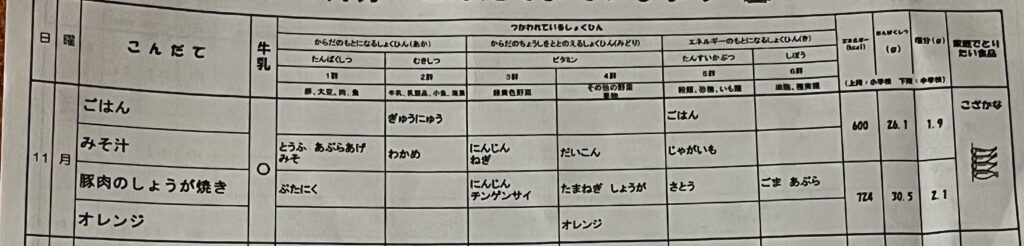 日 曜 こんだて 牛乳 つかわれているしょくひん エネルギー(kcal) たんぱくしつ(g) 塩分(g) 家庭でとりたい食品
からだのもとになるしょくひん(あか) からだのちょうしをととのえるしょくひん(みどり) エネルギーのもとになるしょくひん(き)
たんぱくしつ むきしつ ビタミン たんすいかぶつ しぼう
1群 2群 3群 4群 5群 6群 (上段:小学校 下段:中学校)
卵、大豆、肉、魚 牛乳、乳製品、小魚、海藻 緑黄色野菜 その他の野菜 果物 穀類、砂糖、いも類 油脂、種実類
11 月 ○
ごはん ぎゅうにゅう ごはん こざかな
600 26.1 1.9
みそ汁 とうふ あぶらあげ わかめ にんじん だいこん じゃがいも
みそ ねぎ
豚肉のしょうが焼き ぶたにく にんじん たまねぎ しょうが さとう ごま あぶら
チンゲンサイ
724 30.5 2.1
オレンジ オレンジ